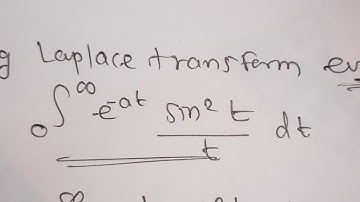 g Laplace transform ev
∫₀^∞ e^{-at} \frac{sin² t}{t} dt